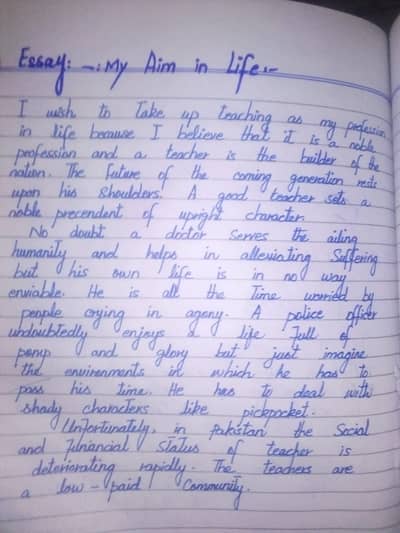 Essay: -: My Aim in Life :-
I wish to Take up teaching as my profession
in life because I believe that it is a noble
profession and a teacher is the builder of the
nation. The future of the coming generation rests
upon his shoulders. A good teacher sets a
noble precendent of upright character.
No doubt a doctor serves the ailing
humanity and helps in alleviating Suffering
but his own life is in no way
enviable. He is all the Time worried by
people crying in agony. A police officer
undoubtedly enjoys a life full of
pomp and glory but just imagine
the environments in which he has to
pass his time. He has to deal with
shady characters like pickpocket.
Unfortunately, in Pakistan the Social
and financial Status of teacher is
deteriorating rapidly. The teachers are
a low-paid Community.